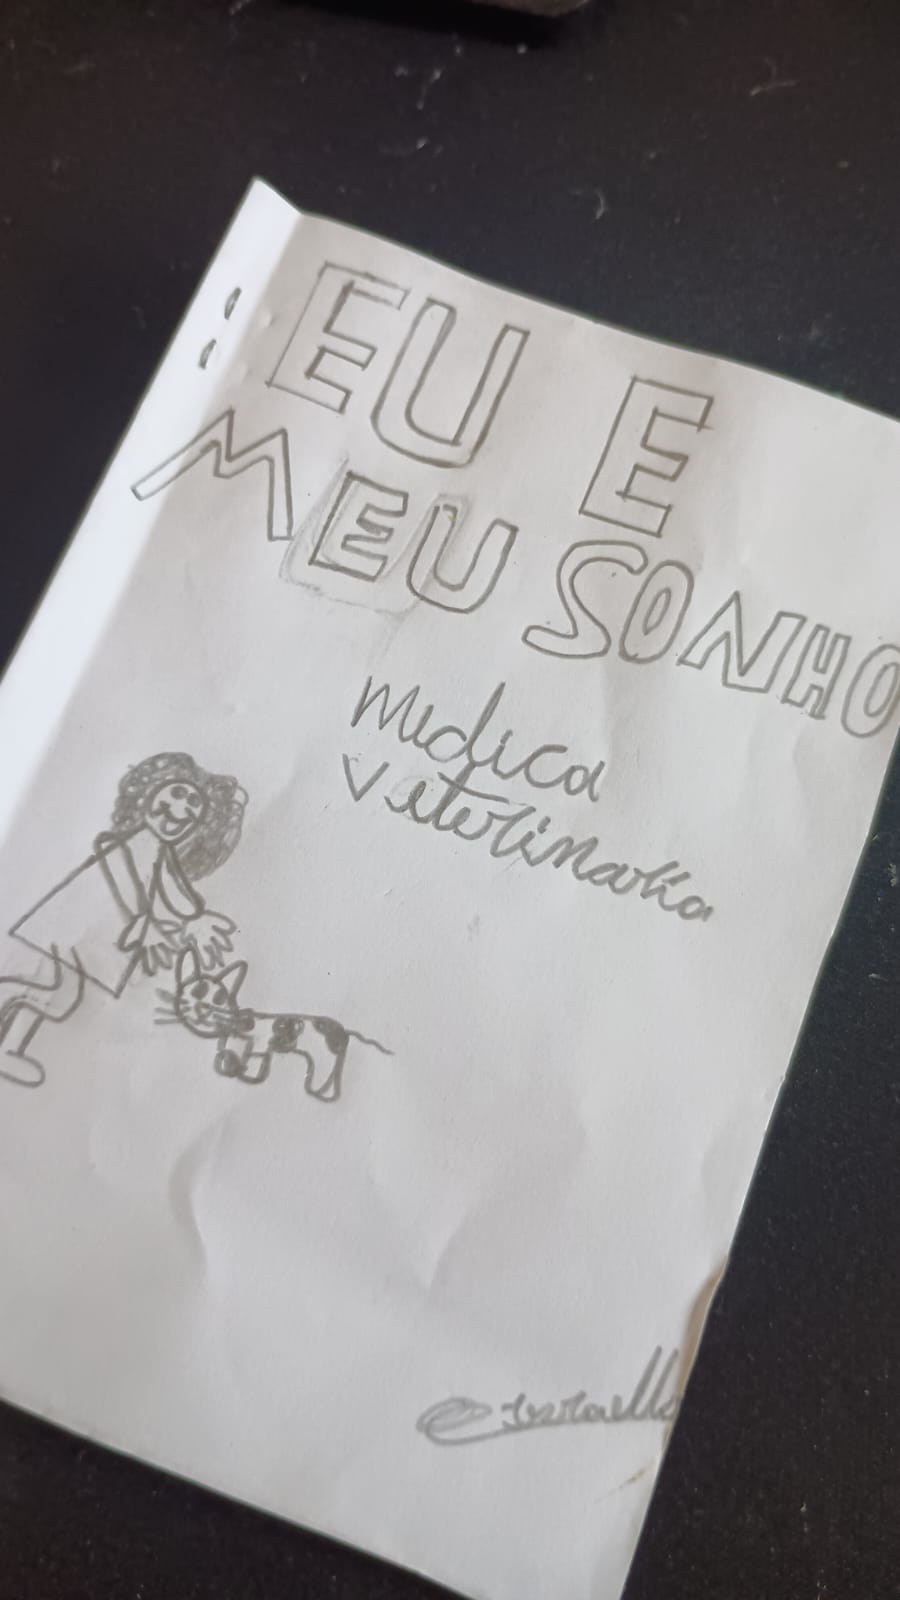 EU E
MEU SONHO
Medica
Veterinaria